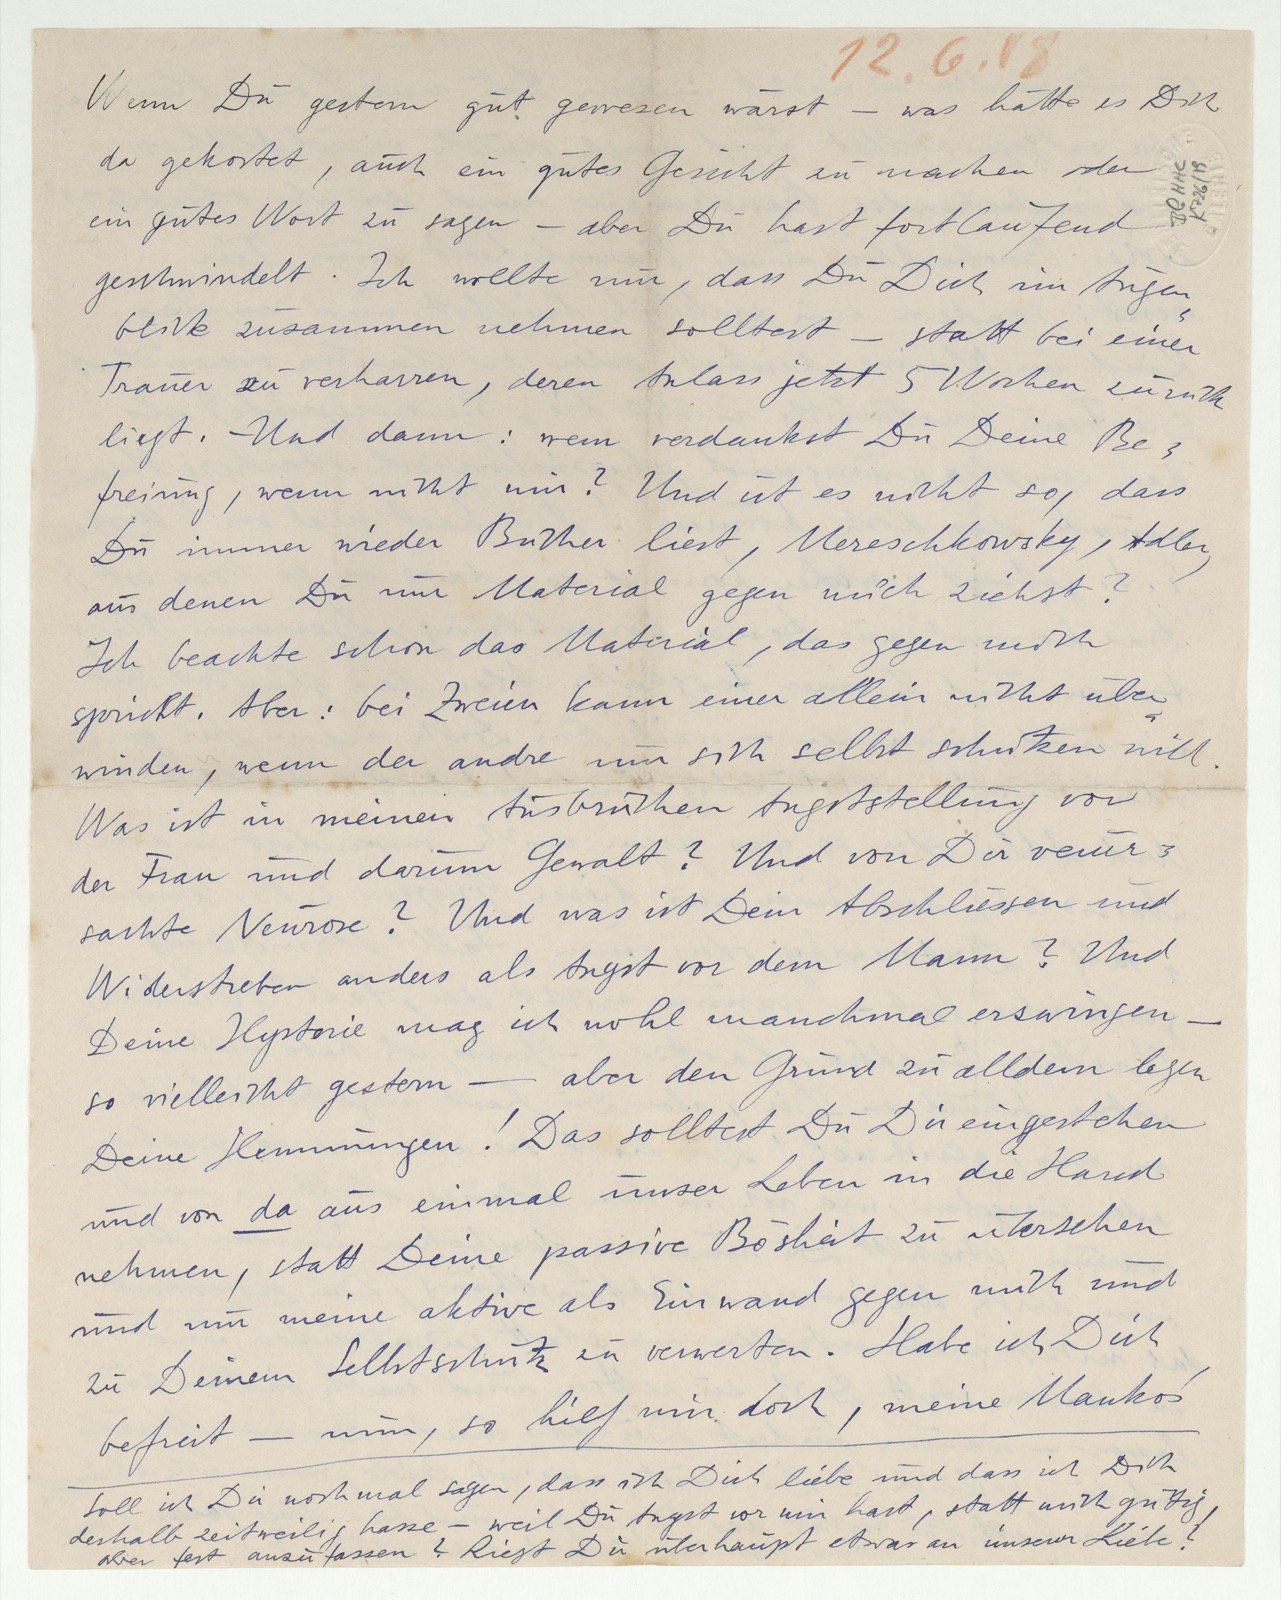 12.6.18
Wenn Du gestern gut gewesen wärst – was hätte es Dich
da gekostet, auch ein gutes Gesicht zu machen oder
ein gutes Wort zu sagen – aber Du hast fortlaufend
geschwindelt. Ich wollte nur, dass Du Dich im Augen„
blick zusammen nehmen solltest – statt bei einer
Trauer zu verharren, deren Anlass jetzt 5 Wochen zurück
liegt. – Und dann: wem verdankst Du Deine Be„
freiung, wenn nicht mir? Und ist es nicht so, dass
Du immer wieder Bücher liest, Mereschkowsky, Adler,
aus denen Du nur Material gegen mich ziehst?
Ich beachte schon das Material, das gegen mich
spricht. Aber: bei Zweien kann einer allein nicht über„
winden, wenn der andre nur sich selbst schützen will.
Was ist in meinen Ausbrüchen Angststellung vor
der Frau und darum Gewalt? Und von Dir verur„
sachte Neurose? Und was ist Dein Abschliessen und
Widerstreben anders als Angst vor dem Mann? Und
Deine Hysterie mag ich wohl manchmal erzwingen –
so vielleicht gestern – aber den Grund zu alldem legen
Deine Hemmungen! Das solltest Du Dir eingestehen
und von da aus einmal unser Leben in die Hand
nehmen, statt Deine passive Bösheit zu übersehen
und nur meine aktive als Einwand gegen mich und
zu Deinem Selbstschutz zu verwerten. Habe ich Dich
befreit – nun, so hilf mir doch, meine Mankos
Soll ich Dir nochmal sagen, dass ich Dich liebe und dass ich Dich
deshalb zeitweilig hasse – weil Du Angst vor mir hast, statt mich gütig,
aber fest anzufassen? Liegt Dir überhaupt etwas an unserer Liebe?
BG HHC
K 726/79